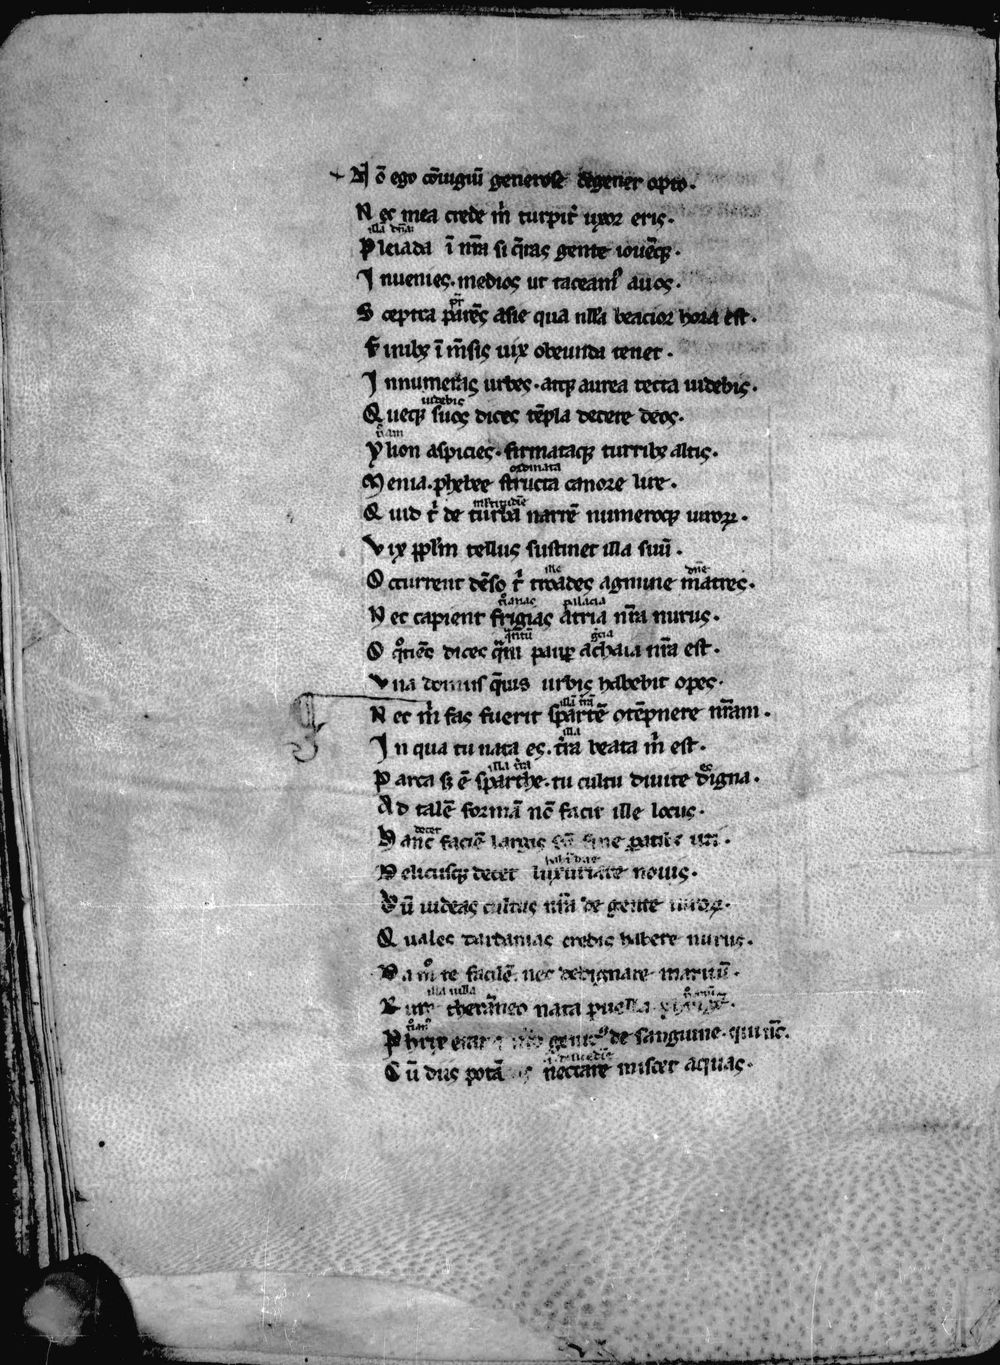 N õ ego cõiugiũ generose degener opto.
N ec mea crede m̃ turpit̃ uxor eris.
illa dña
P leiada ĩ nr̃a si q̃ras gente iouẽq;
I nuenies. medios ut taceam⁹ auos.
pr̃
S ceptra parẽs asie qua nlla beatior hora est.
F inib; ĩm̃sis uix obeunda tenet.
I nnumeras urbes. atq; aurea tecta uidebis.
uidebis
Q ueq; suos dices tẽpla decere deos.
Y lion aspicies. firmataq; turrib; altis.
ordinata
M enia. phebee structa canore lire.
Q uid t̃ de turba narrẽ numeroq; uiroꝝ.
V ix pp̃lm tellus sustinet illa suũ.
ille dñe
O ccurrent dẽso t̃ troades agmine matres.
palacia
N ec capient frigias atria nr̃a nurus.
q̃ntũ grcia
O q̃tiẽs dices q̃m paup̃ achaia nr̃a est.
V na domus q̃uis urbis habebit opes.
illã tr̃ã
N ec m̃ fas fuerit spartẽ cõtẽpnere nr̃am.
illa
I n qua tu nata es. tr̃a beata m̃ est.
illa tr̃a es
P arca s; ẽ sparthe. tu cultu diuite digna.
A d talẽ formã nõ facit ille locus.
decet
H anc faciẽ largis sine
D eliciisq; decet luxuriare nouis.
C ũ uideas cultus nr̃a de gente uiroꝝ.
Q uales dardanias credis habere nurus.
D a m° te facilẽ. nec dedignare maritũ.
illa uilla
R ure therãneo nata puella
P hrix erat de sanguine. qui nc̃.
C ũ diis potã nectare miscet aquas.